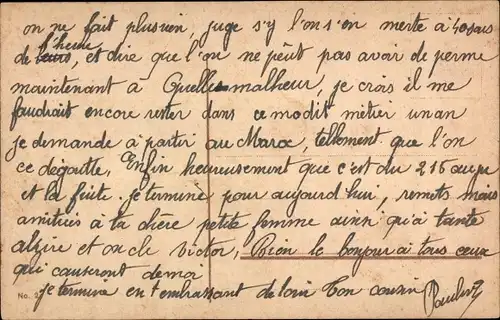 on ne fait plus rien, juge s'y l'on s'en merte à 40 sous
de l'heure, et dire que l'on ne peût pas avoir de perme
maintenant à Quelle malheur, je crois il me
faudrait encore rester dans ce modit métier un an
je demande à partir au Maroc, tellement que l'on
ce dégoutte, Enfin heureusement que c'est du 216 au jus
et la fuite. je termine pour aujourd'hui, remets mais
amitiés à ta chère petite femme ainsi qu'à tante
et oncle Victor, Bien le bonjour à tous ceux
qui causeront de moi
je termine en t'embrassant de loin Ton cousin
No.